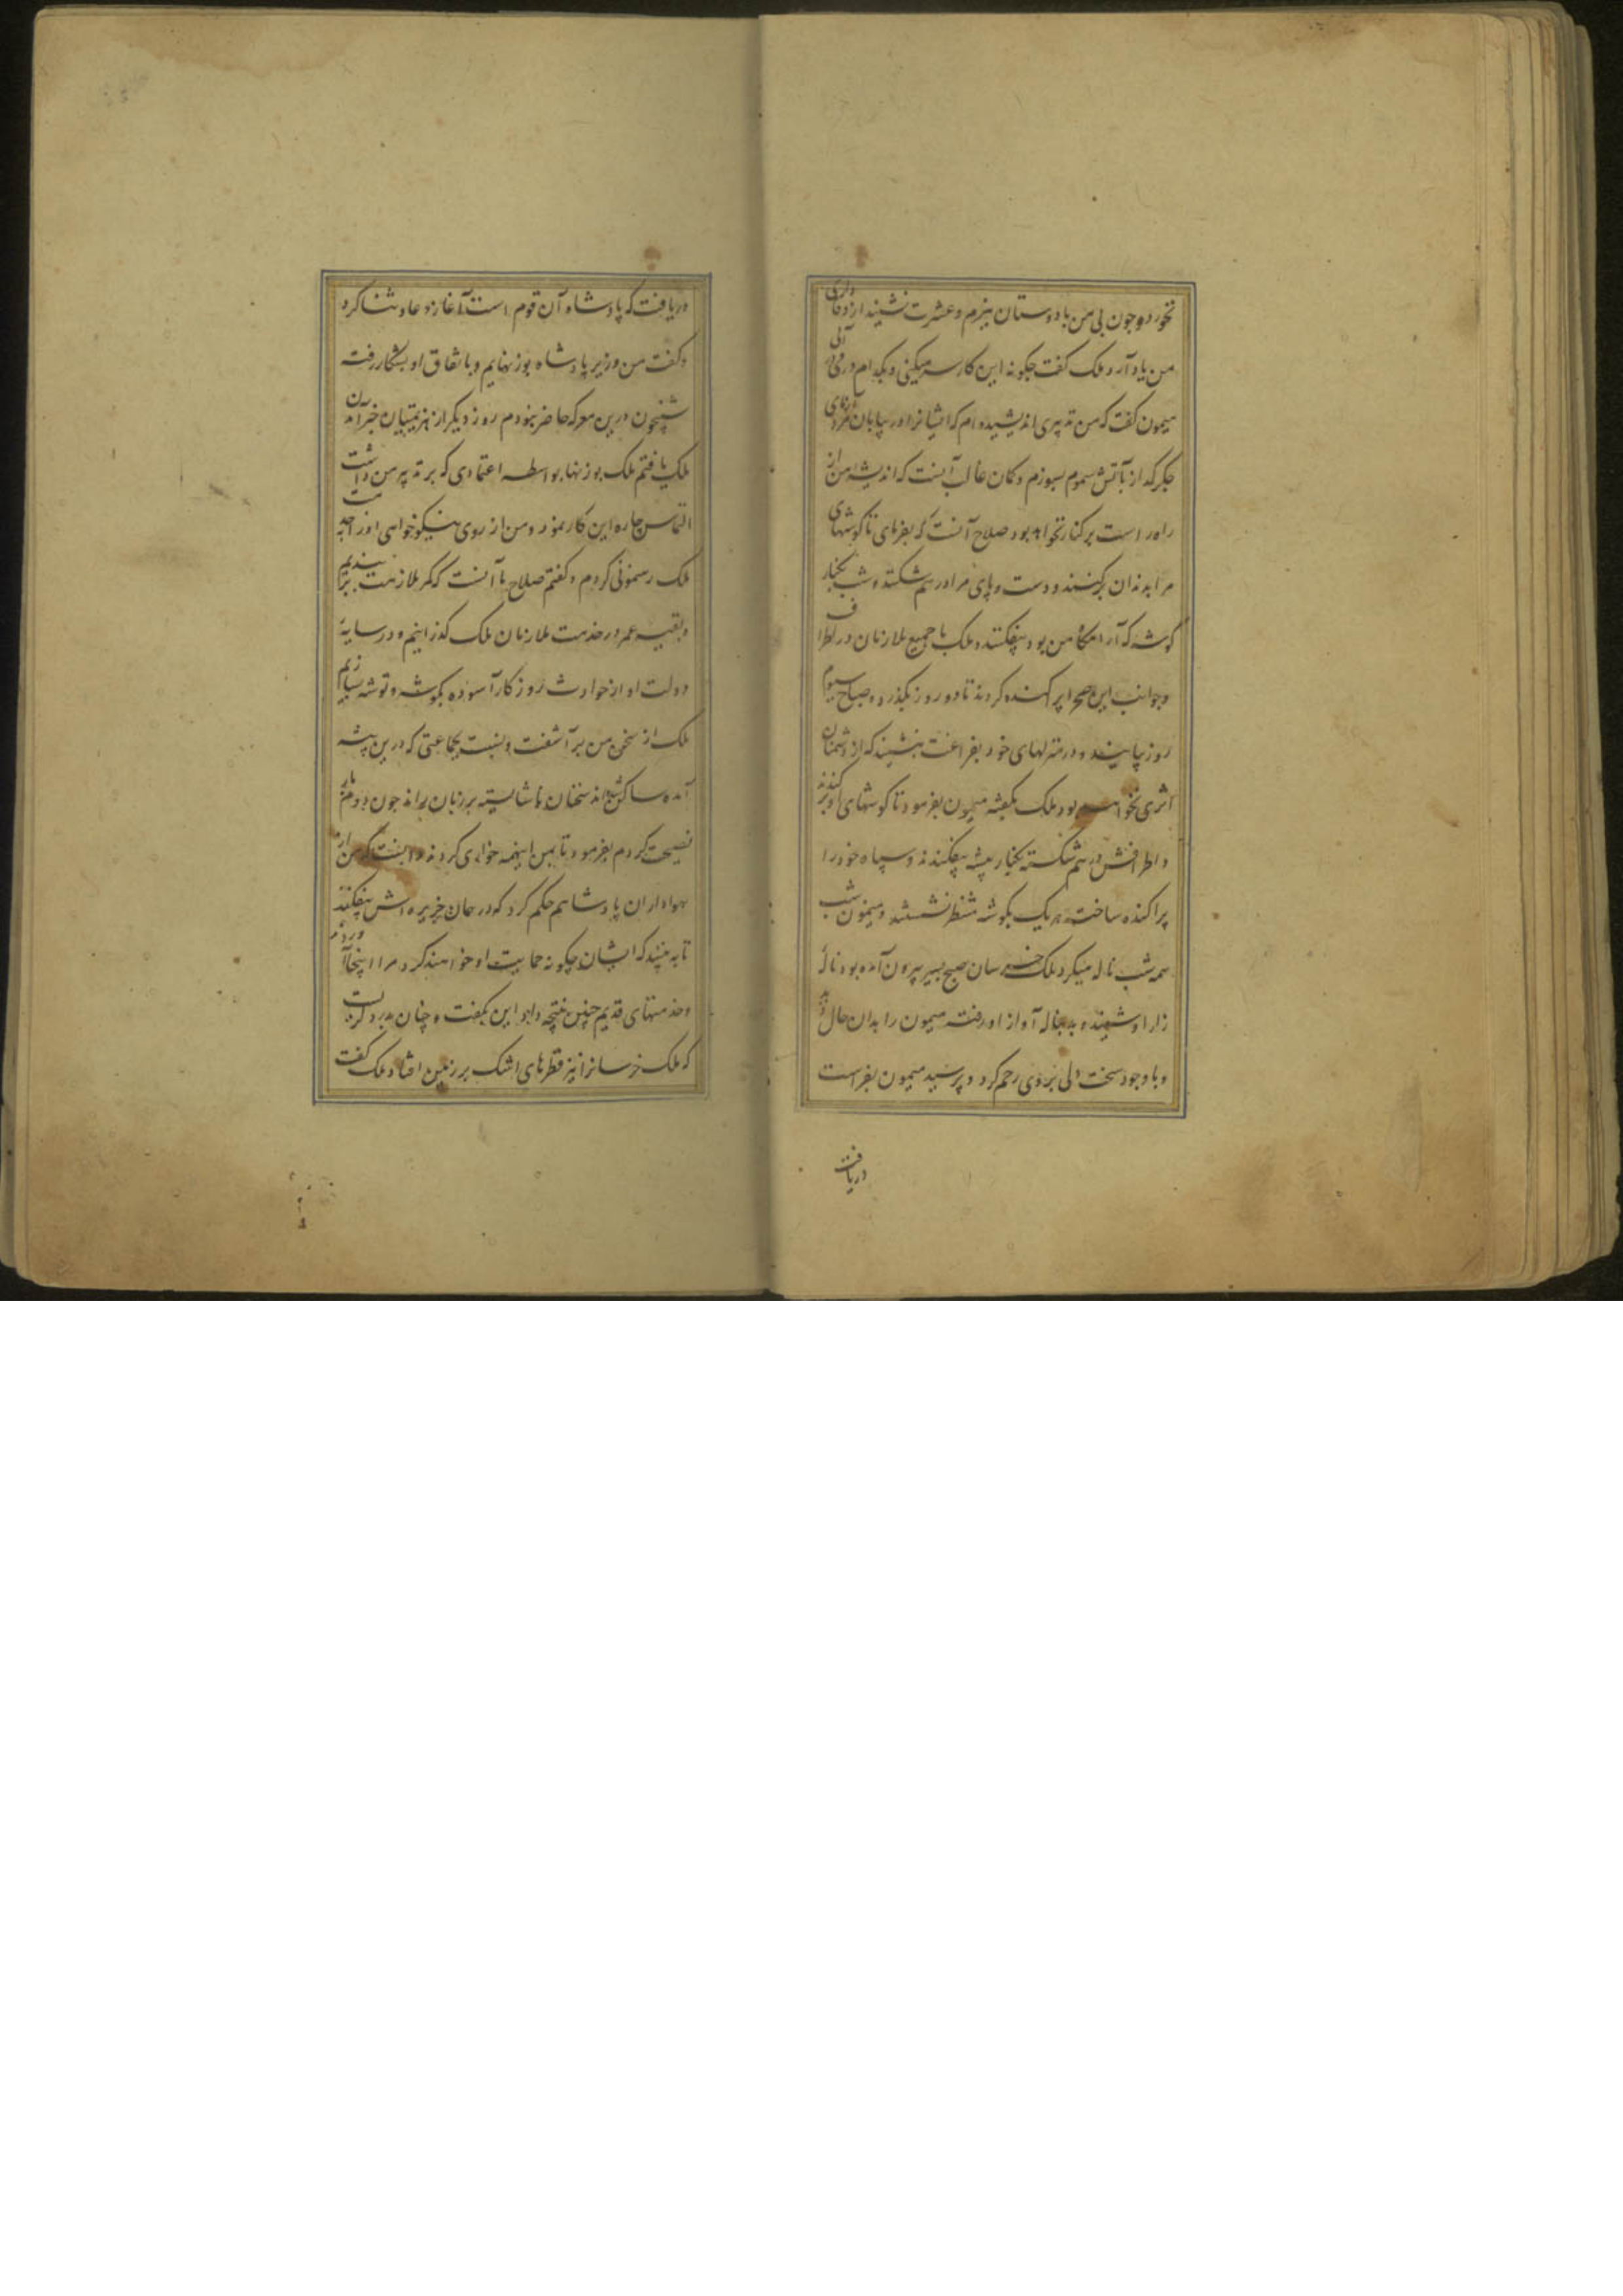 نخورد و چون بی من با دوستان ببزم و عشرت نشیند از وفاداری
من یاد آرد ملک گفت چگونه این کار سر میکنی و بکدام در می آئی
میمون گفت که من تدبیری اندیشیده ام که ایشانرا در بیابان
جگر گداز بآتش سموم بسوزم و گمان غالب آنست که اندیشه من از
راه راست بر کنار نخواهد بود صلاح آنست که بفرمای تا گوشهای
مرا بدندان برکنند و دست و پای مرا در هم شکسته شب بکنار
گوشه که آرامگاه من بود بیفکنند و ملک با جمیع ملازمان در اطراف
وجوانب این صحرا پراکنده کردند تا دو روز بگذرد و صباح سیوم
روز بیایند و در منزلهای خود بفراغت بنشینند که از دشمنان
اثری نخواهد بود ملک بگفته میمون بفرمود تا گوشهای او برکندند
و اطرافش در هم شکسته بکنار بیشه بیفکندند و سپاه خود را
پراکنده ساخت هر یک بگوشه منتظر نشستند و میمون شب
همه شب ناله میکرد ملک خرسان صبح بسیر بیرون آمده بود ناله
زار او شنیده بدنباله آواز او رفت میمون را بدان حال دید
و با وجود سخت دلی بر وی رحم کرد و پرسید میمون بفراست
دریافت
دریافت که پادشاه آن قوم است آغاز دعا و ثنا کرد
و گفت من وزیر پادشاه بوزنهایم و باتفاق او بشکار رفته
شبیخون درین معرکه حاضر نبودم روز دیگر از هزیمتیان خبر آن
ملک یافتم ملک بوزنها بواسطه اعتمادی که بر تدبیر من داشت
التماس چاره این کار نمود و من از روی نیکو خواهی او را بخدمت
ملک رهنمونی کردم و گفتم صلاح ما آنست که کمر ملازمت بربندیم
و بقیه عمر در خدمت ملازمان ملک گذرانیم و در سایه
دولت او از حوادث روزگار آسوده بگوشه و توشه بسازیم
ملک از سخن من برآشفت و نسبت بجماعتی که درین بیشه
آمده ساکن شده اند سخنان ناشایسته بر زبان براند چون دوم بار
نصیحت کردم بفرمود تا بمن اینهمه خواری کردند و گفت که من از
هواداران پادشاهم حکم کرد که در همان جزیره اش بیفکنند
تا به بینند که ایشان چگونه حمایت او خواهند کرد مرا اینجا آوردند
و خدمتهای قدیم چنین نتیجه داد این بگفت و چنان بدرد گریست
که ملک خرسانرا نیز قطرهای اشک بر زمین افتاد ملک گفت